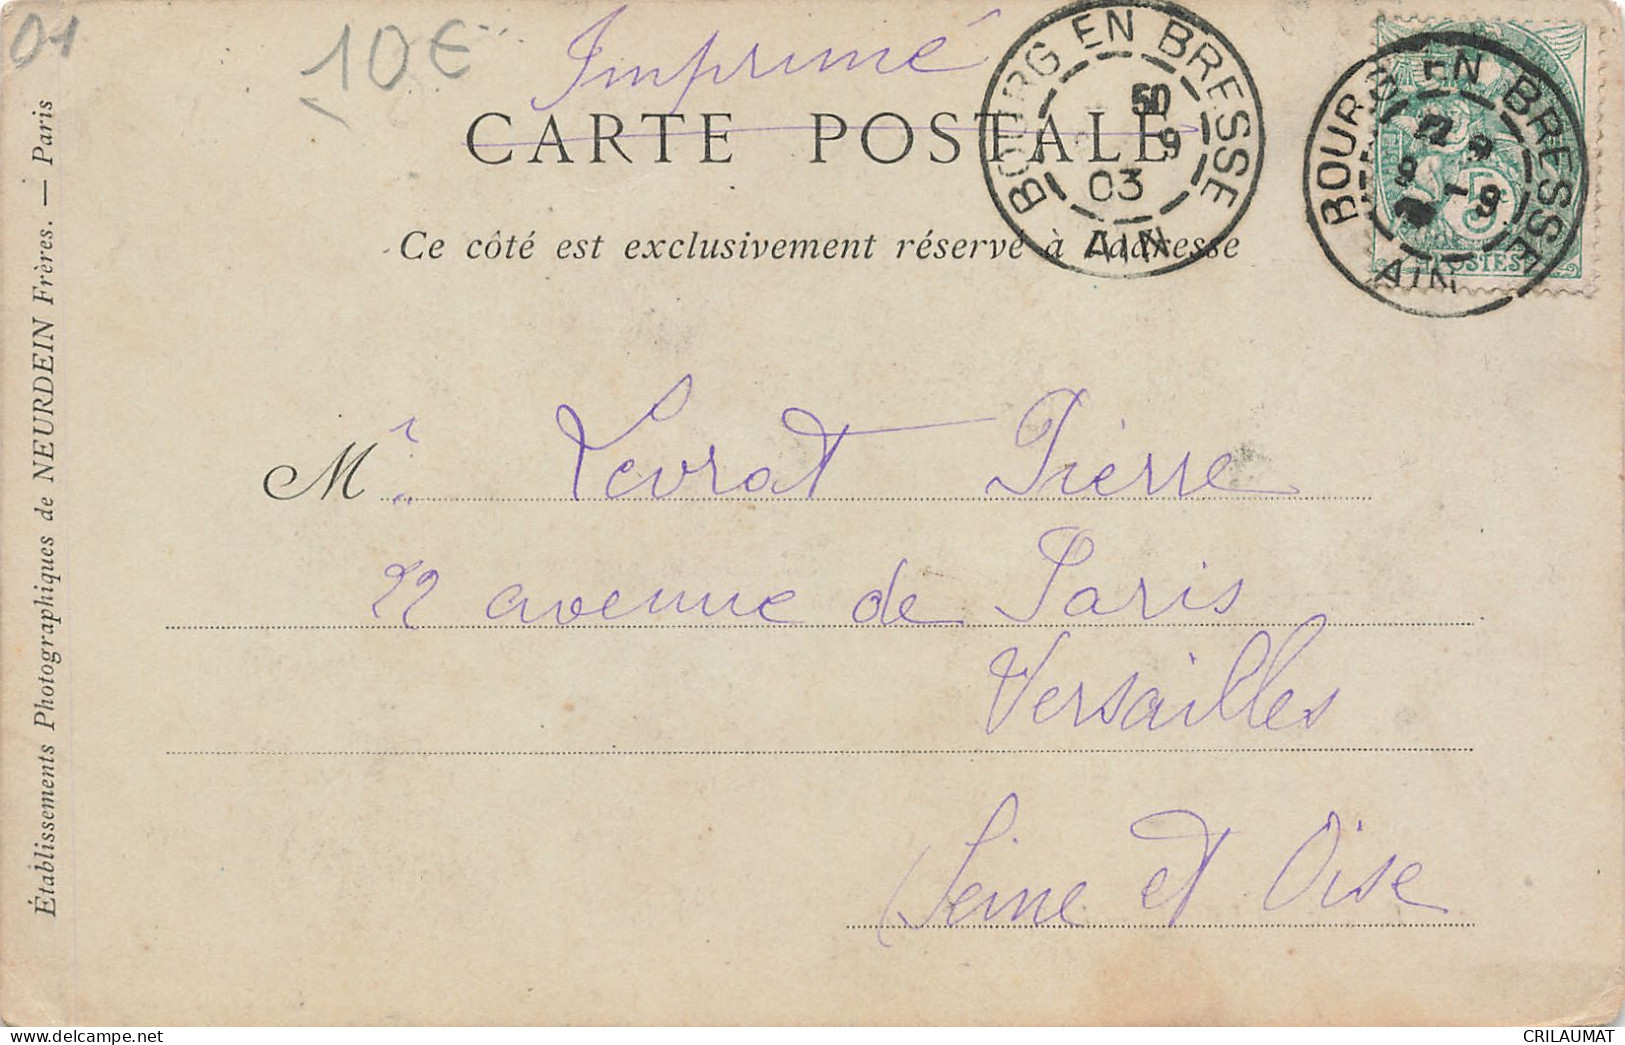 01
10€
Imprimé
CARTE POSTALE
Ce côté est exclusivement réservé à l'adresse
BOURG EN BRESSE
9
03
AIN
BOURG EN BRESSE
AIN
5c
POSTES
Établissements Photographiques de NEURDEIN Frères. — Paris
Mr Levrat Pierre
22 avenue de Paris
Versailles
Seine et Oise
CRILAUMAT